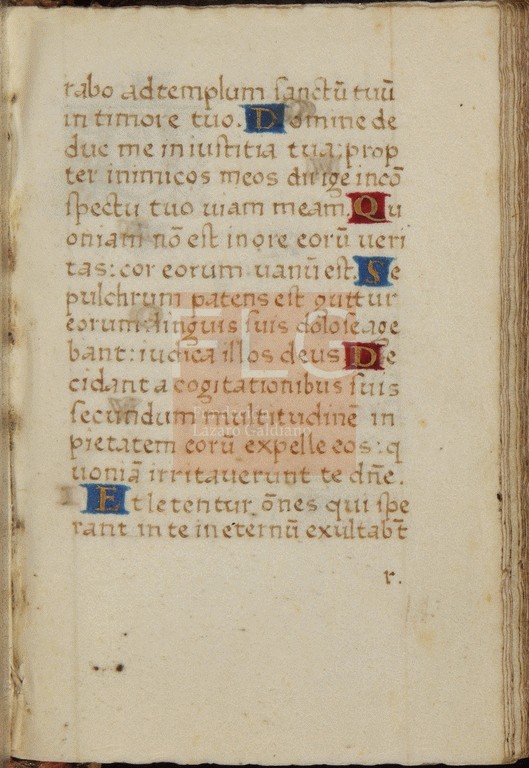 rabo ad templum sanctū tuū
in timore tuo. Domine de
duc me in iustitia tua: prop
ter inimicos meos dirige incō
spectu tuo uiam meam. Qu
oniam nō est in ore eorū ueri
tas: cor eorum uanū est. Se
pulchrum patens est guttur
eorum linguis suis dolose age
bant: iudica illos deus De
cidant a cogitationibus suis
secundum multitudinē in
pietatem eorū expelle eos: q
uoniā irritauerunt te dn̄e.
Et letentur ōnes qui spe
rant in te in eternū exultab̄t
r.
FLG
Lázaro Galdiano